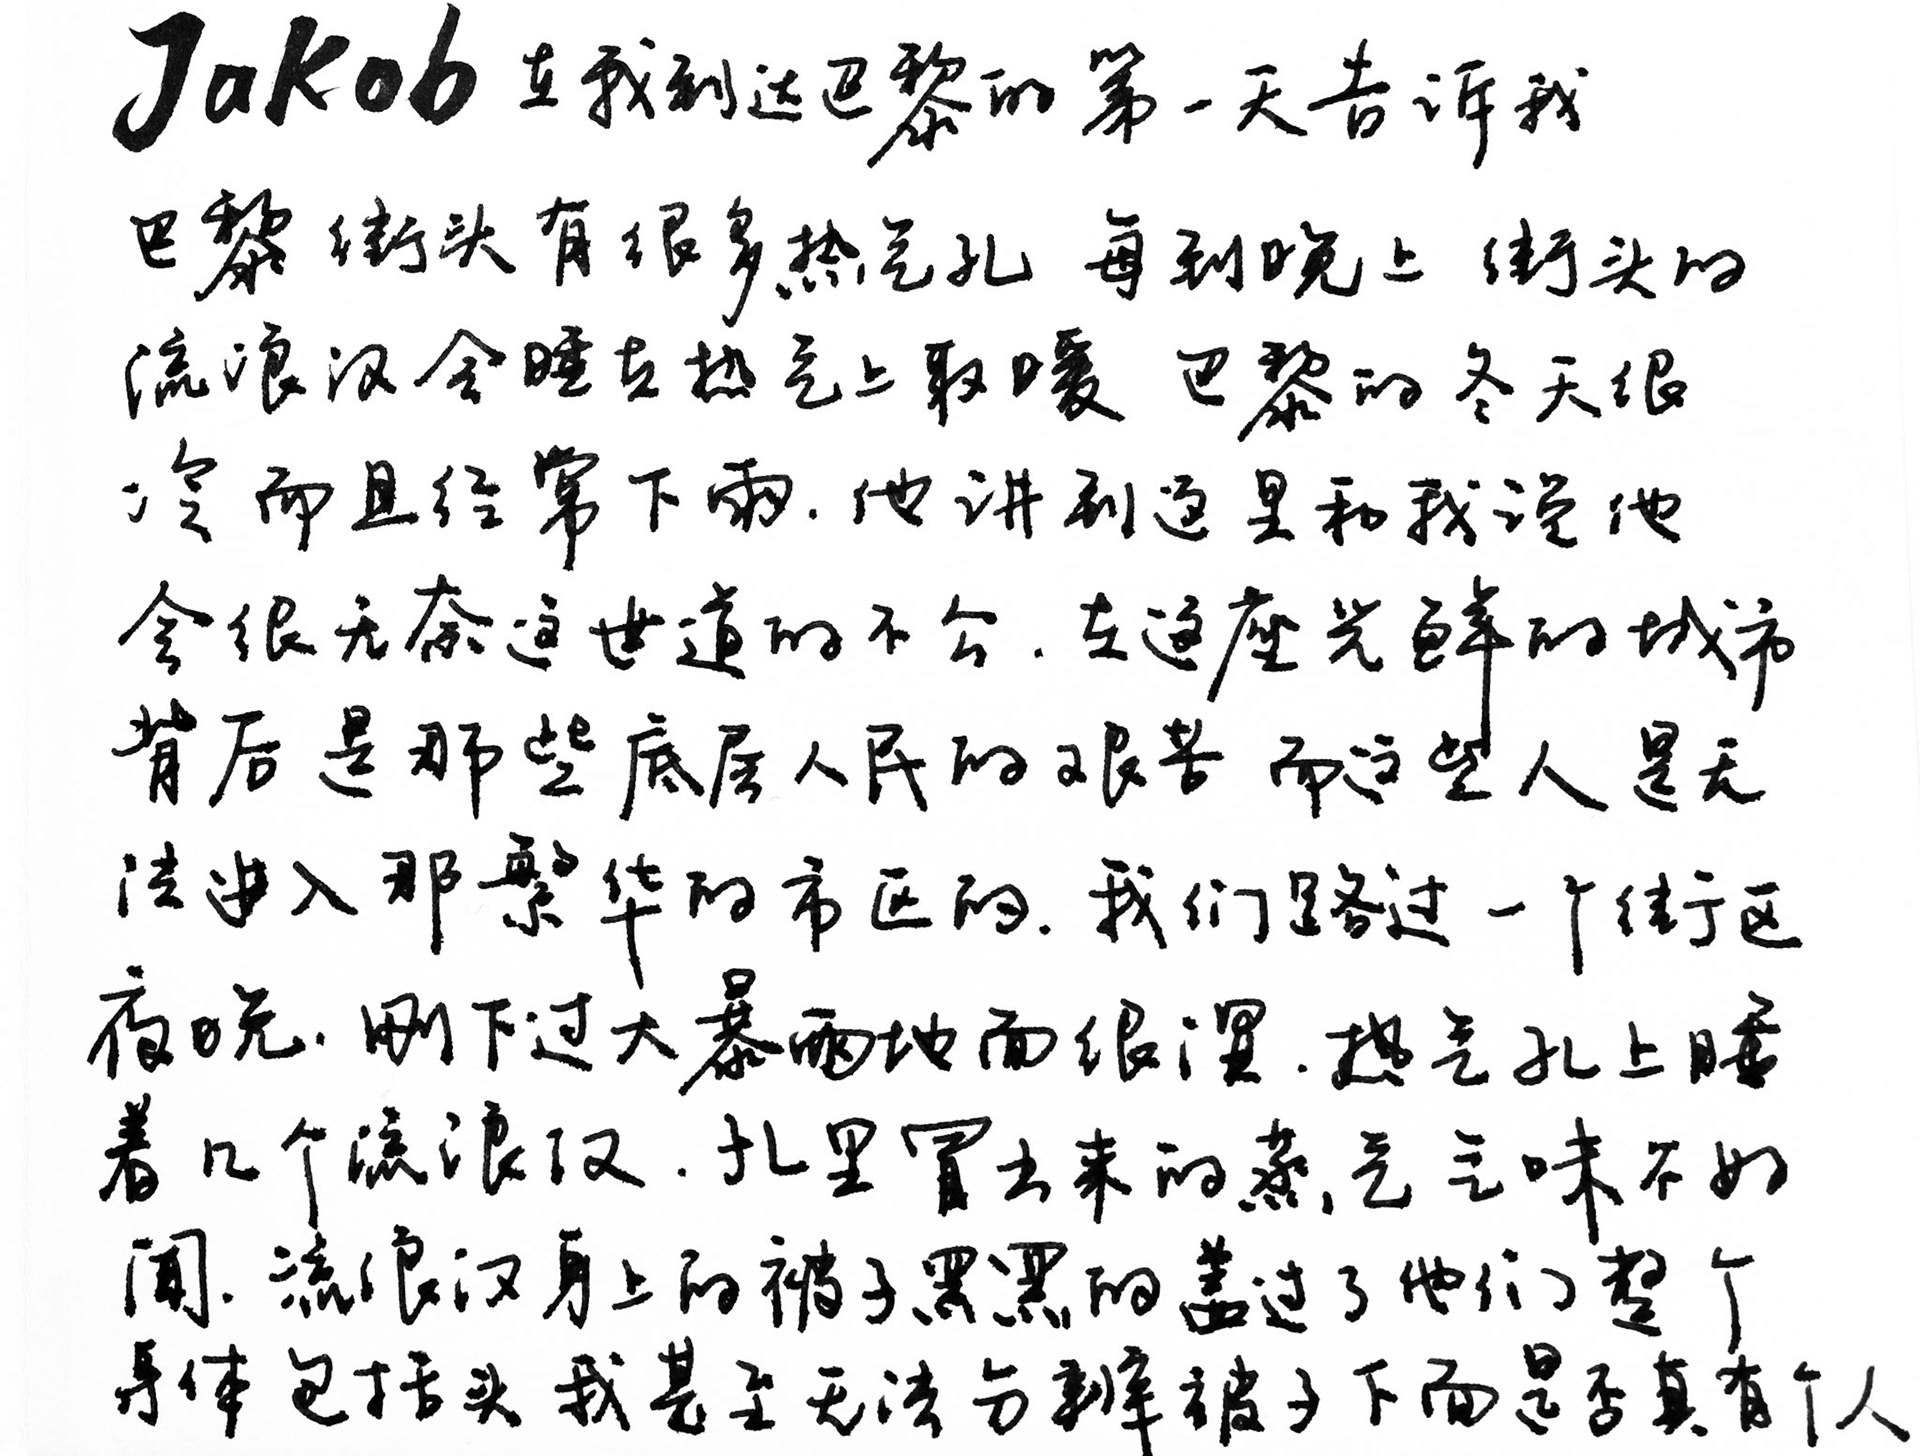 Jakob 在我到达巴黎的第一天告诉我
巴黎街头有很多热气孔 每到晚上 街头的
流浪汉会睡在热气上取暖 巴黎的冬天很
冷而且经常下雨.他讲到这里和我说他
会很无奈这世道的不公.在这座光鲜的城市
背后是那些底层人民的艰苦 而这些人是无
法进入那繁华的市区的.我们路过一个街区
夜晚.刚下过大暴雨地面很湿.热气孔上睡
着几个流浪汉.孔里冒出来的蒸气气味不好
闻.流浪汉身上的被子黑黑的盖过了他们整个
身体包括头 我甚至无法分辨被子下面是否真有个人